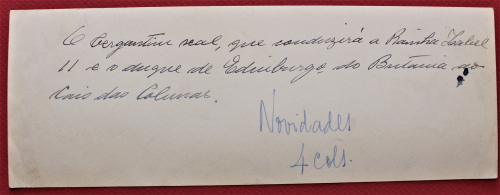 O bergantim real, que conduzirá a Rainha Isabel
II e o duque de Edinburgo do Britania ao
Cais das Colunas.
Novidades
4 cols.